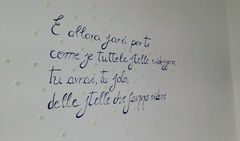 E allora sarà per te
come se tutte le stelle ridessero
tu avrai, tu solo,
delle stelle che sanno ridere